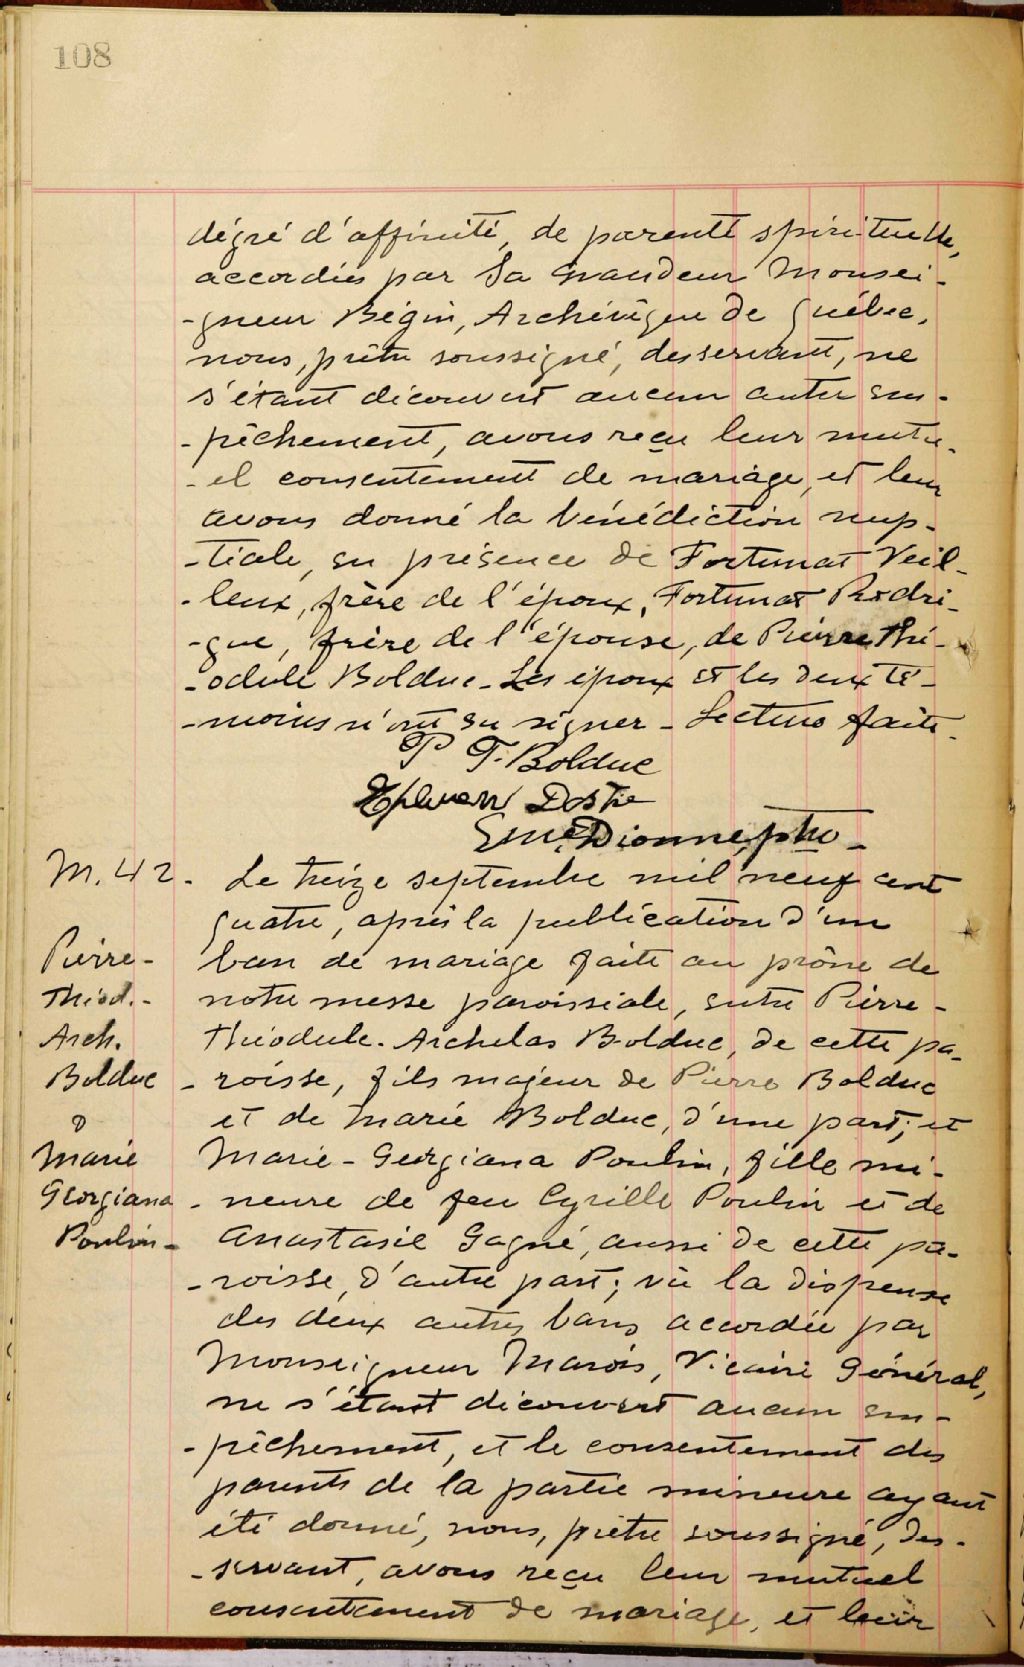 108
dégré d'affinité, de parenté spirituelle,
accordées par Sa Grandeur Monsei-
-gneur Bégin, Archévêque de Québec,
nous, prêtre soussigné, desservant, ne
s'étant découvert aucun autre em-
-pêchement, avons reçu leur mutu-
-el consentement de mariage, et leur
avons donné la bénédiction nup-
-tiale, en présence de Fortunat Veil-
-leux, frère de l'époux, Fortunat Rodri-
-gue, frère de l'épouse, de Pierre Thé-
-odule Bolduc - Les époux et les deux té-
-moins n'ont su signer - Lecture faite -
P T. Bolduc
Dostie
Dionne, ptre -
M. 42 -
Pierre-
Théod.-
Arch.
Bolduc
&
Marie
Georgiana
Poulin -
Le treize septembre mil neuf cent
quatre, après la publication d'un
ban de mariage faite au prône de
notre messe paroissiale, entre Pierre-
Théodule-Archelas Bolduc, de cette pa-
-roisse, fils majeur de Pierre Bolduc
et de Marie Bolduc, d'une part; et
Marie-Georgiana Poulin, fille mi-
-neure de feu Cyrille Poulin et de
Anastasie Gagné, aussi de cette pa-
-roisse, d'autre part; vû la dispense
des deux autres bans accordée par
Monseigneur Marois, Vicaire Général,
ne s'étant découvert aucun em-
-pêchement, et le consentement des
parents de la partie mineure ayant
été donné, nous, prêtre soussigné, des-
-servant, avons reçu leur mutuel
consentement de mariage, et leur